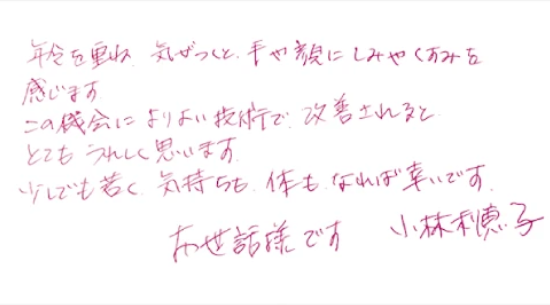 年令を重ね 気がつくと、手や顔にしみやくすみを
感じます
この機会に よりよい技術で、改善されると
とても うれしく思います
少しでも若く、気持ちも、体も、なれば幸いです。
お世話様です 小林利恵子